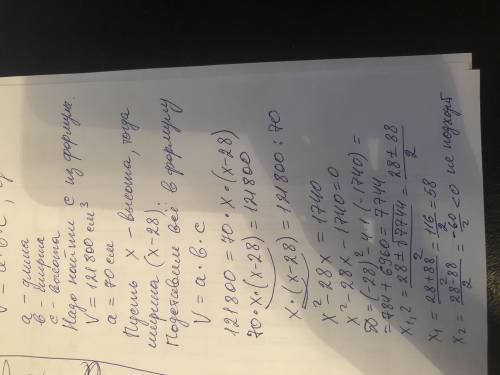 V = a·b·c,
a - длина
в - ширина
c - высота
Надо найти c из формулы.
V = 121800 см³
a = 70 см
Пусть x - высота, тогда
ширина (x-28).
Подставим всё в формулу
V = a·b·c
121800 = 70·x·(x-28)
70·x·(x-28) = 121800
x·(x-28) = 121800:70
x²-28x = 1740
x²-28x-1740=0
D=(-28)²-4·1·(-1740)=
=784+6960=7744
x₁,₂ = 28±√7744/2 = 28±88/2
x₁ = 28+88/2 = 116/2 = 58
x₂ = 28-88/2 = -60/2 <0 не подход